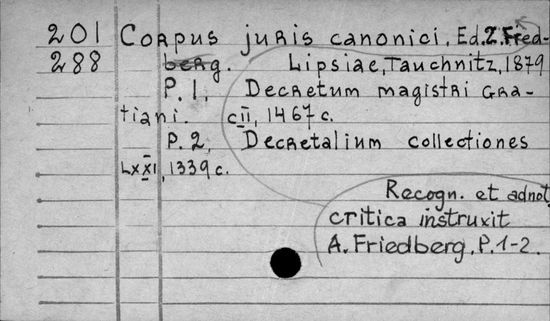 201 Corpus juris canonici. Ed. 2. Fried-
288 berg. Lipsiae, Tauchnitz, 1879
P. 1, Decretum magistri Gra-
tiani. cII, 1467 c.
P. 2, Decretalium collectiones
LXXI, 1339 c.
Recogn. et adnot.
critica instruxit
A. Friedberg. P. 1-2.